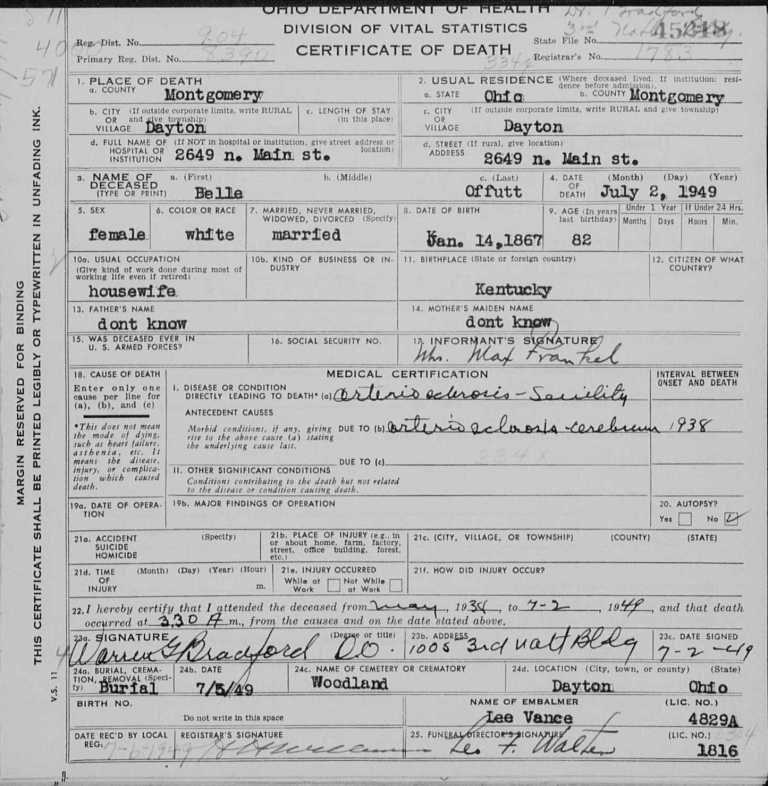 OHIO DEPARTMENT OF HEALTH
DIVISION OF VITAL STATISTICS
CERTIFICATE OF DEATH
Reg. Dist. No. 904
Primary Reg. Dist. No. 8390
State File No. 45318
Registrar's No. 1783
1. PLACE OF DEATH
a. COUNTY Montgomery
2. USUAL RESIDENCE (Where deceased lived. If institution: residence before admission).
a. STATE Ohio b. COUNTY Montgomery
b. CITY (If outside corporate limits, write RURAL
OR and give township)
VILLAGE Dayton
c. LENGTH OF STAY
(in this place)
c. CITY (If outside corporate limits, write RURAL and give township)
OR
VILLAGE Dayton
d. FULL NAME OF (If NOT in hospital or institution, give street address or
HOSPITAL OR location)
INSTITUTION 2649 n. Main st.
d. STREET (If rural, give location)
ADDRESS 2649 n. Main st.
3. NAME OF a. (First) b. (Middle) c. (Last)
DECEASED
(TYPE OR PRINT) Belle Offutt
4. DATE (Month) (Day) (Year)
OF
DEATH July 2, 1949
5. SEX
female
6. COLOR OR RACE
white
7. MARRIED, NEVER MARRIED,
WIDOWED, DIVORCED (Specify)
married
8. DATE OF BIRTH
Jan. 14,1867
9. AGE (In years
last birthday)
82
Under 1 Year If Under 24 Hrs.
Months Days Hours Min.
10a. USUAL OCCUPATION
(Give kind of work done during most of
working life even if retired)
housewife
10b. KIND OF BUSINESS OR IN-
DUSTRY
11. BIRTHPLACE (State or foreign country)
Kentucky
12. CITIZEN OF WHAT
COUNTRY?
13. FATHER'S NAME
dont know
14. MOTHER'S MAIDEN NAME
dont know
15. WAS DECEASED EVER IN
U. S. ARMED FORCES?
16. SOCIAL SECURITY NO.
17. INFORMANT'S SIGNATURE
Mrs. Max Frankel
18. CAUSE OF DEATH
Enter only one
cause per line for
(a), (b), and (c)
*This does not mean
the mode of dying,
such as heart failure,
asthenia, etc. It
means the disease,
injury, or complica-
tion which caused
death.
MEDICAL CERTIFICATION
INTERVAL BETWEEN
ONSET AND DEATH
I. DISEASE OR CONDITION
DIRECTLY LEADING TO DEATH* (a) arteriosclerosis - Senility
ANTECEDENT CAUSES
Morbid conditions, if any, giving
rise to the above cause (a) stating
the underlying cause last.
DUE TO (b) arteriosclerosis-cerebrum 1938
DUE TO (c)
334 x
II. OTHER SIGNIFICANT CONDITIONS
Conditions contributing to the death but not related
to the disease or condition causing death.
19a. DATE OF OPERA-
TION
19b. MAJOR FINDINGS OF OPERATION
20. AUTOPSY?
Yes No
21a. ACCIDENT (Specify)
SUICIDE
HOMICIDE
21b. PLACE OF INJURY (e.g., in
or about home, farm, factory,
street, office building, forest,
etc.)
21c. (CITY, VILLAGE, OR TOWNSHIP) (COUNTY) (STATE)
21d. TIME (Month) (Day) (Year) (Hour)
OF
INJURY m.
21e. INJURY OCCURRED
While at Work Not While at Work
21f. HOW DID INJURY OCCUR?
22. I hereby certify that I attended the deceased from may, 1938, to 7-2, 1949, and that death
occurred at 3,30 A m., from the causes and on the date stated above.
23a. SIGNATURE (Degree or title)
Warren G Bradford D.O.
23b. ADDRESS
1005 3rd natl Bldg
23c. DATE SIGNED
7-2-49
24a. BURIAL, CREMA-
TION, REMOVAL (Speci-
fy) Burial
24b. DATE
7/5/49
24c. NAME OF CEMETERY OR CREMATORY
Woodland
24d. LOCATION (City, town, or county) (State)
Dayton Ohio
BIRTH NO.
Do not write in this space
NAME OF EMBALMER (LIC. NO.)
Lee Vance 4829A
DATE REC'D BY LOCAL
REG. 7-6-1949
REGISTRAR'S SIGNATURE
25. FUNERAL DIRECTOR'S SIGNATURE (LIC. NO.)
Leo F. Walter 1816
MARGIN RESERVED FOR BINDING
THIS CERTIFICATE SHALL BE PRINTED LEGIBLY OR TYPEWRITTEN IN UNFADING INK.
V.S. 11